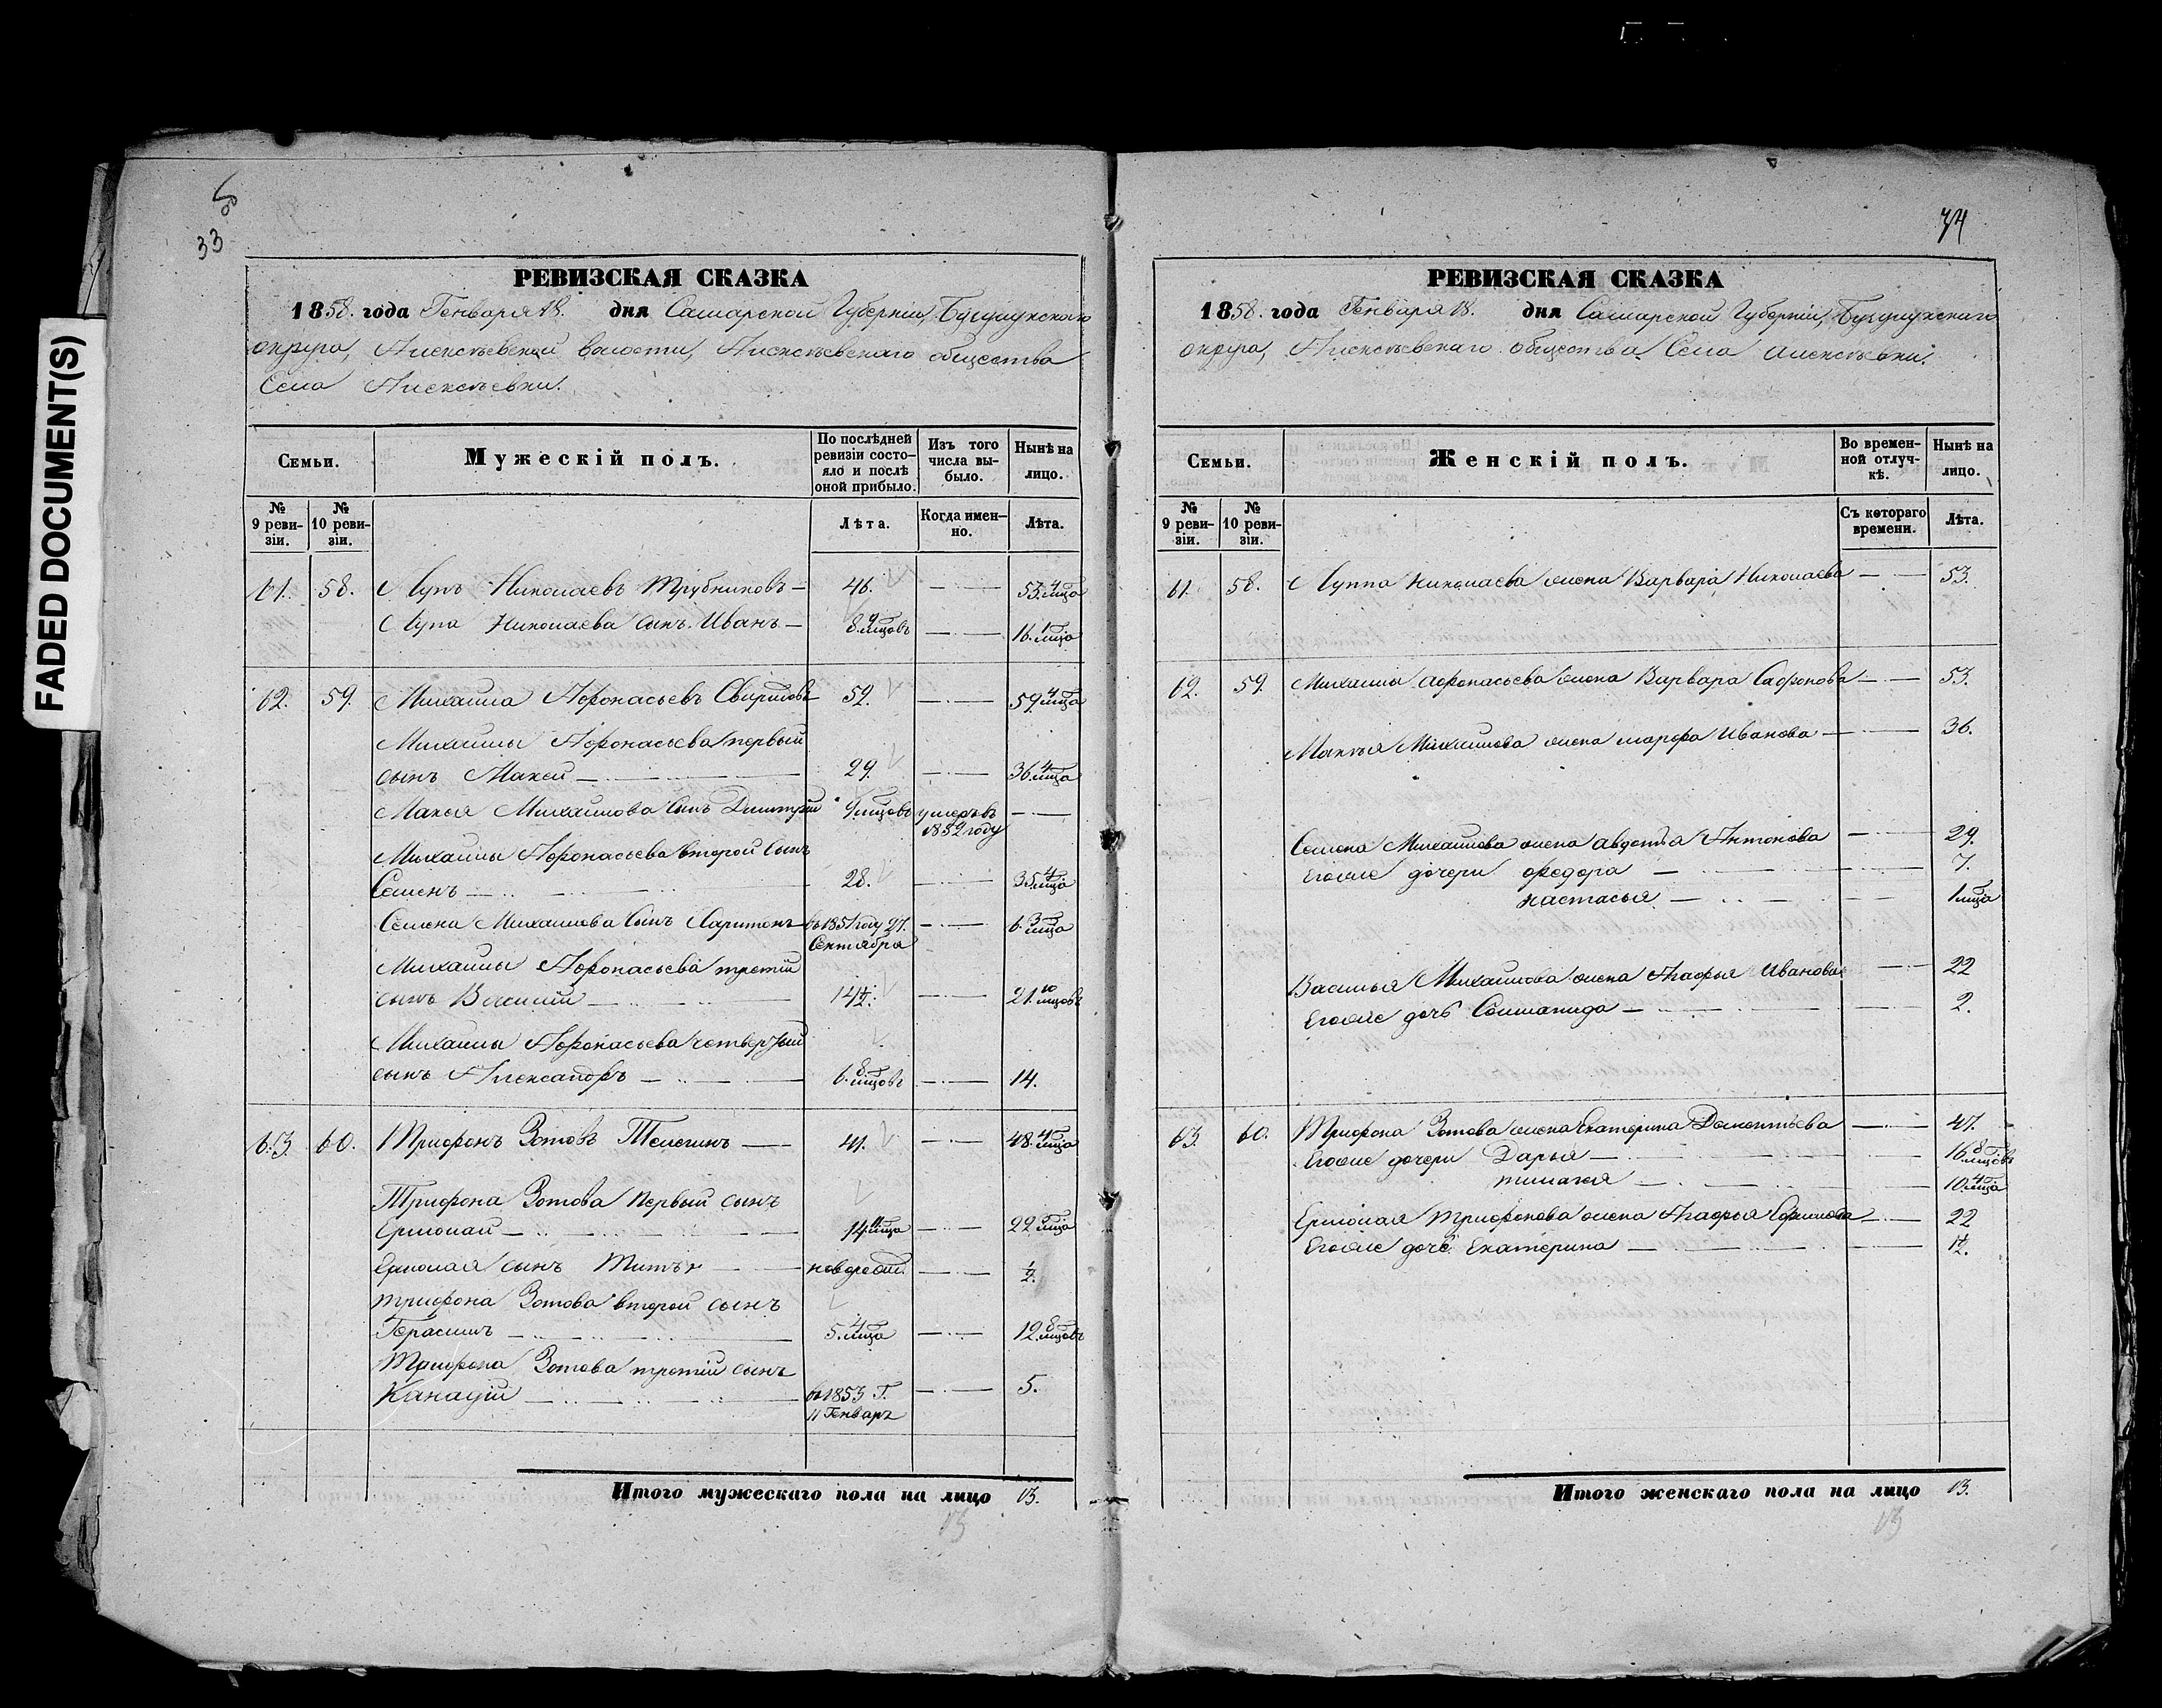 FADED DOCUMENT(S)
33
РЕВИЗСКАЯ СКАЗКА
1858. года Генваря 18. дня Самарской Губерніи, Бугурусланскаго
округа, Алексѣевской волости, Алексѣевскаго общества
Села Алексѣевки.
Семьи.
Мужескій полъ.
По послѣдней ревизіи состояло и послѣ оной прибыло.
Изъ того числа выбыло.
Нынѣ на лицо.
№ 9 ревизіи.
№ 10 ревизіи.
Лѣта.
Когда именно.
Лѣта.
61. 58. Лупъ Николаевъ Трубниковъ — 46. — 53. 4 мца
Лупа Николаева сынъ Иванъ — 8. 9 мцовъ — 16. мца
62. 59. Михаила Афонасьевъ — 52. — 59. 4 мца
Михаилы Афонасьева первый
сынъ Макей — 29. — 36. 4 мца
Макея Михаилова сынъ Дмитрій 9 мцовъ умеръ въ
1852 году —
Михаилы Афонасьева второй сынъ
Семенъ — 28. — 35. 4 мца
Семена Михаилова сынъ Харитонъ — въ 1851 году 27. — 6. 3 мца
Сентября
Михаилы Афонасьева третій
сынъ Василій — 14½. — 21. 10 мцовъ
Михаилы Афонасьева четвертый
сынъ Александръ — 6. 8 мцовъ — 14.
63. 60. Трифонъ Зотовъ Телегинъ — 41. — 48. 4 мца
Трифона Зотова первый сынъ
Ермолай — 14. мца — 22. мца
Ермолая сынъ Титъ — новорожд. — ½.
Трифона Зотова второй сынъ
Герасимъ — 5. 4 мца — 12. 8 мцовъ
Трифона Зотова третій сынъ
— въ 1853 Г. — 5.
11 Генваръ
Итого мужескаго пола на лицо 13.
13
74
РЕВИЗСКАЯ СКАЗКА
1858. года Генваря 18. дня Самарской Губерніи, Бугурусланскаго
округа, Алексѣевскаго общества Села Алексѣевки.
Семьи.
Женскій полъ.
Во временной отлучкѣ.
Нынѣ на лицо.
№ 9 ревизіи.
№ 10 ревизіи.
Съ котораго времени.
Лѣта.
61. 58. Луппа Николаева жена Варвара Николаева — 53.
62. 59. Михаилы Афонасьева жена Варвара Сафонова — 53.
Макея Михаилова жена марфа Иванова — 36.
Семена Михаилова жена авдотья Антонова — 29.
Егоже дочери федора — 7.
настасья — 1 мца
Василья Михаилова жена Агафья Иванова — 22
Егоже дочь Соломанида — 2.
63. 60. Трифона Зотова жена Екатерина Дементьева — 47.
Егоже дочери Дарья — 16. 8 мцовъ
пилагея — 10. 4 мца
Ермолая Трифонова жена Агафья Ефимова — 22
Егоже дочь Екатерина — 1½.
Итого женскаго пола на лицо 13.
13